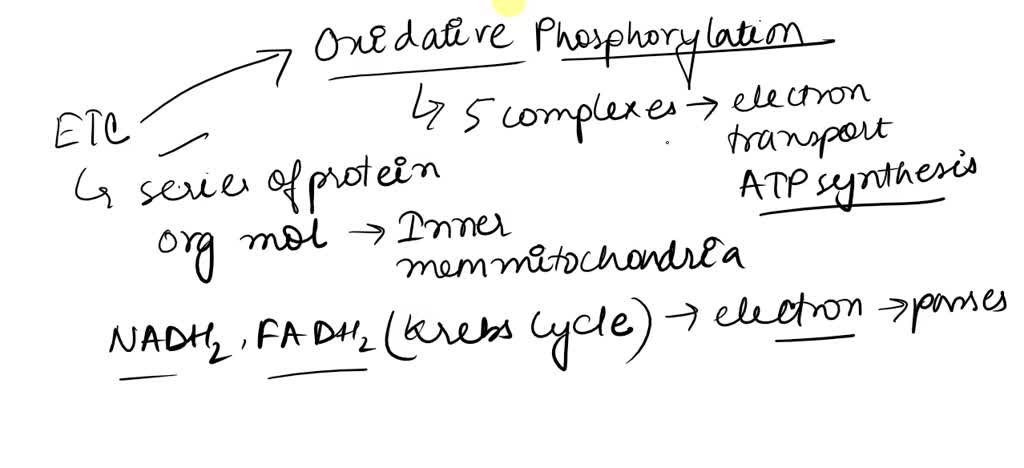 Oxidative Phosphorylation
↳ 5 complexes → electron
transport
ATP synthesis
ETC
↳ series of protein
org mol → Inner
mem mitochondria
NADH2, FADH2 (Krebs Cycle) → electron → passes